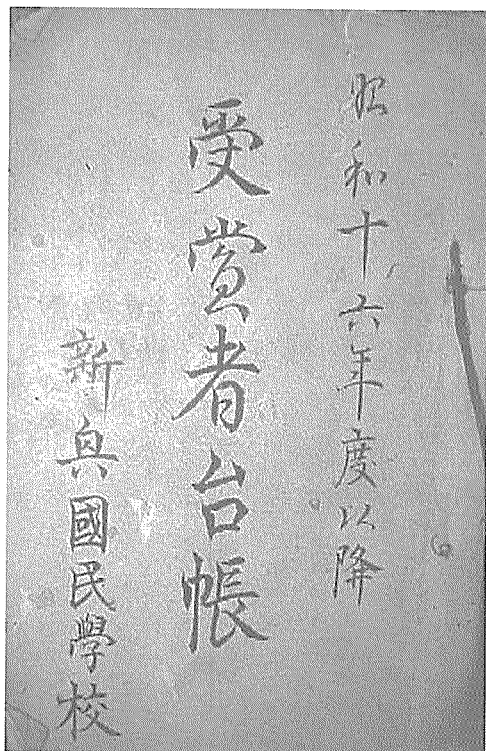 昭和十六年度以降
受賞者台帳
新興國民學校